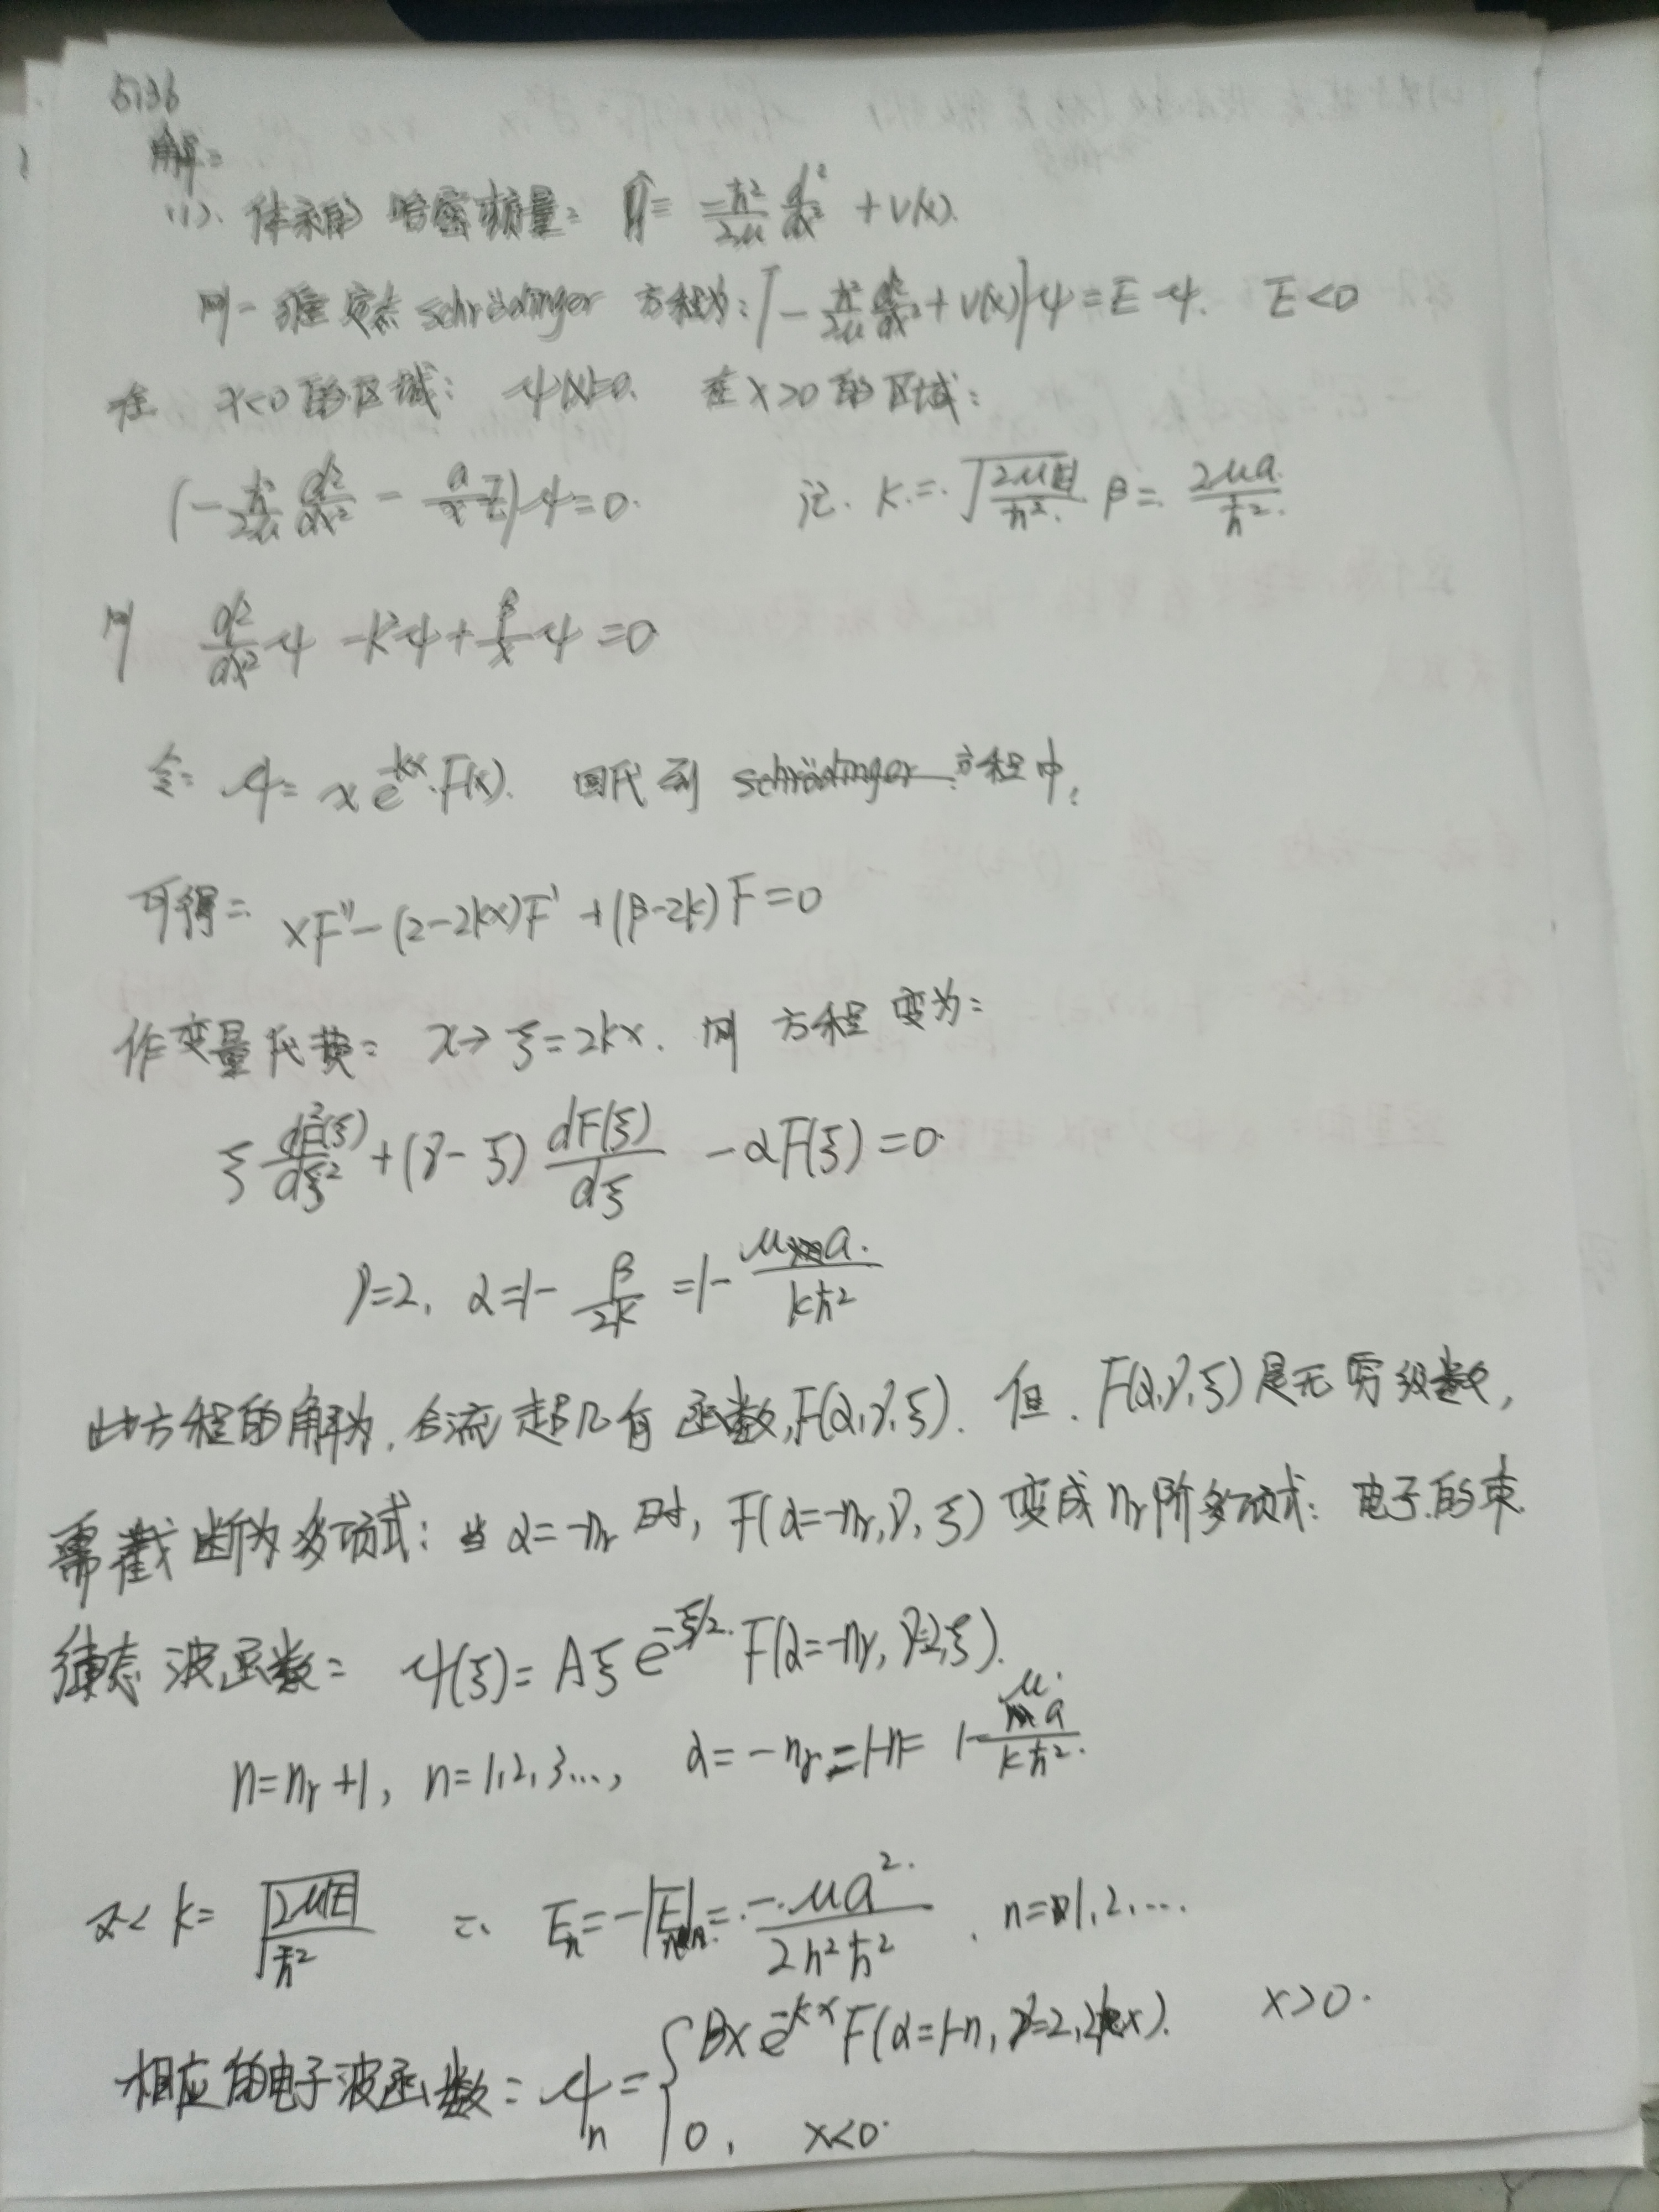 5136
解:
(1). 体系的哈密顿量: Ĥ = -ħ²/2μ d²/dx² + V(x).
则一维定态 schrödinger 方程为: [-ħ²/2μ d²/dx² + V(x)]ψ = Eψ. E<0
在 x<0 的区域: ψ(x)=0. 在 x>0 的区域:
(-ħ²/2μ d²/dx² - a/x - E)ψ=0. 记. k = √(2μ|E|/ħ²) β = 2μa/ħ².
则 d²/dx² ψ - k²ψ + β/x ψ = 0
令: ψ = x e^{-kx}·F(x). 回代到 schrödinger 方程中,
可得: xF'' - (2-2kx)F' + (β-2k)F = 0
作变量代换: x→ξ=2kx. 则方程变为:
ξ d²F(ξ)/dξ² + (γ-ξ) dF(ξ)/dξ - αF(ξ) = 0
γ=2, α=1- β/2k = 1- μa/kħ²
此方程的解为, 合流超几何函数, F(α,γ,ξ). 但. F(α,γ,ξ)是无穷级数,
需截断为多项式: 当 α=-nr 时, F(α=-nr,γ,ξ) 变成 nr 阶多项式: 电子的束
缚态波函数: ψ(ξ)=Aξe^{-ξ/2} F(α=-nr, γ=2,ξ).
n=nr+1, n=1,2,3..., α=-nr=1-n= 1- μa/kħ².
又∵ k= √(2μ|E|/ħ²) ∴ En=-|E|n= -μa²/2n²ħ², n=1,2,...
相应的电子波函数: ψn = { Bxe^{-kx}F(α=1-n, γ=2,2kx). x>0.
0, x<0.